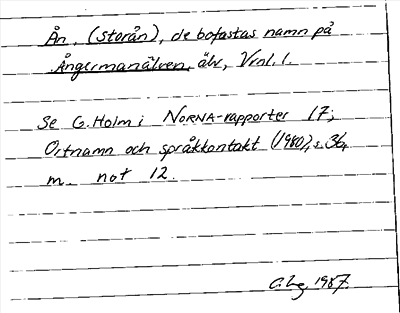 Ån, (Storån), de bofastas namn på
Ångermanälven, älv, Vrnl. l.
Se G. Holm i NORNA-rapporter 17;
Ortnamn och språkkontakt (1980), s. 36,
m. not 12.
1987.